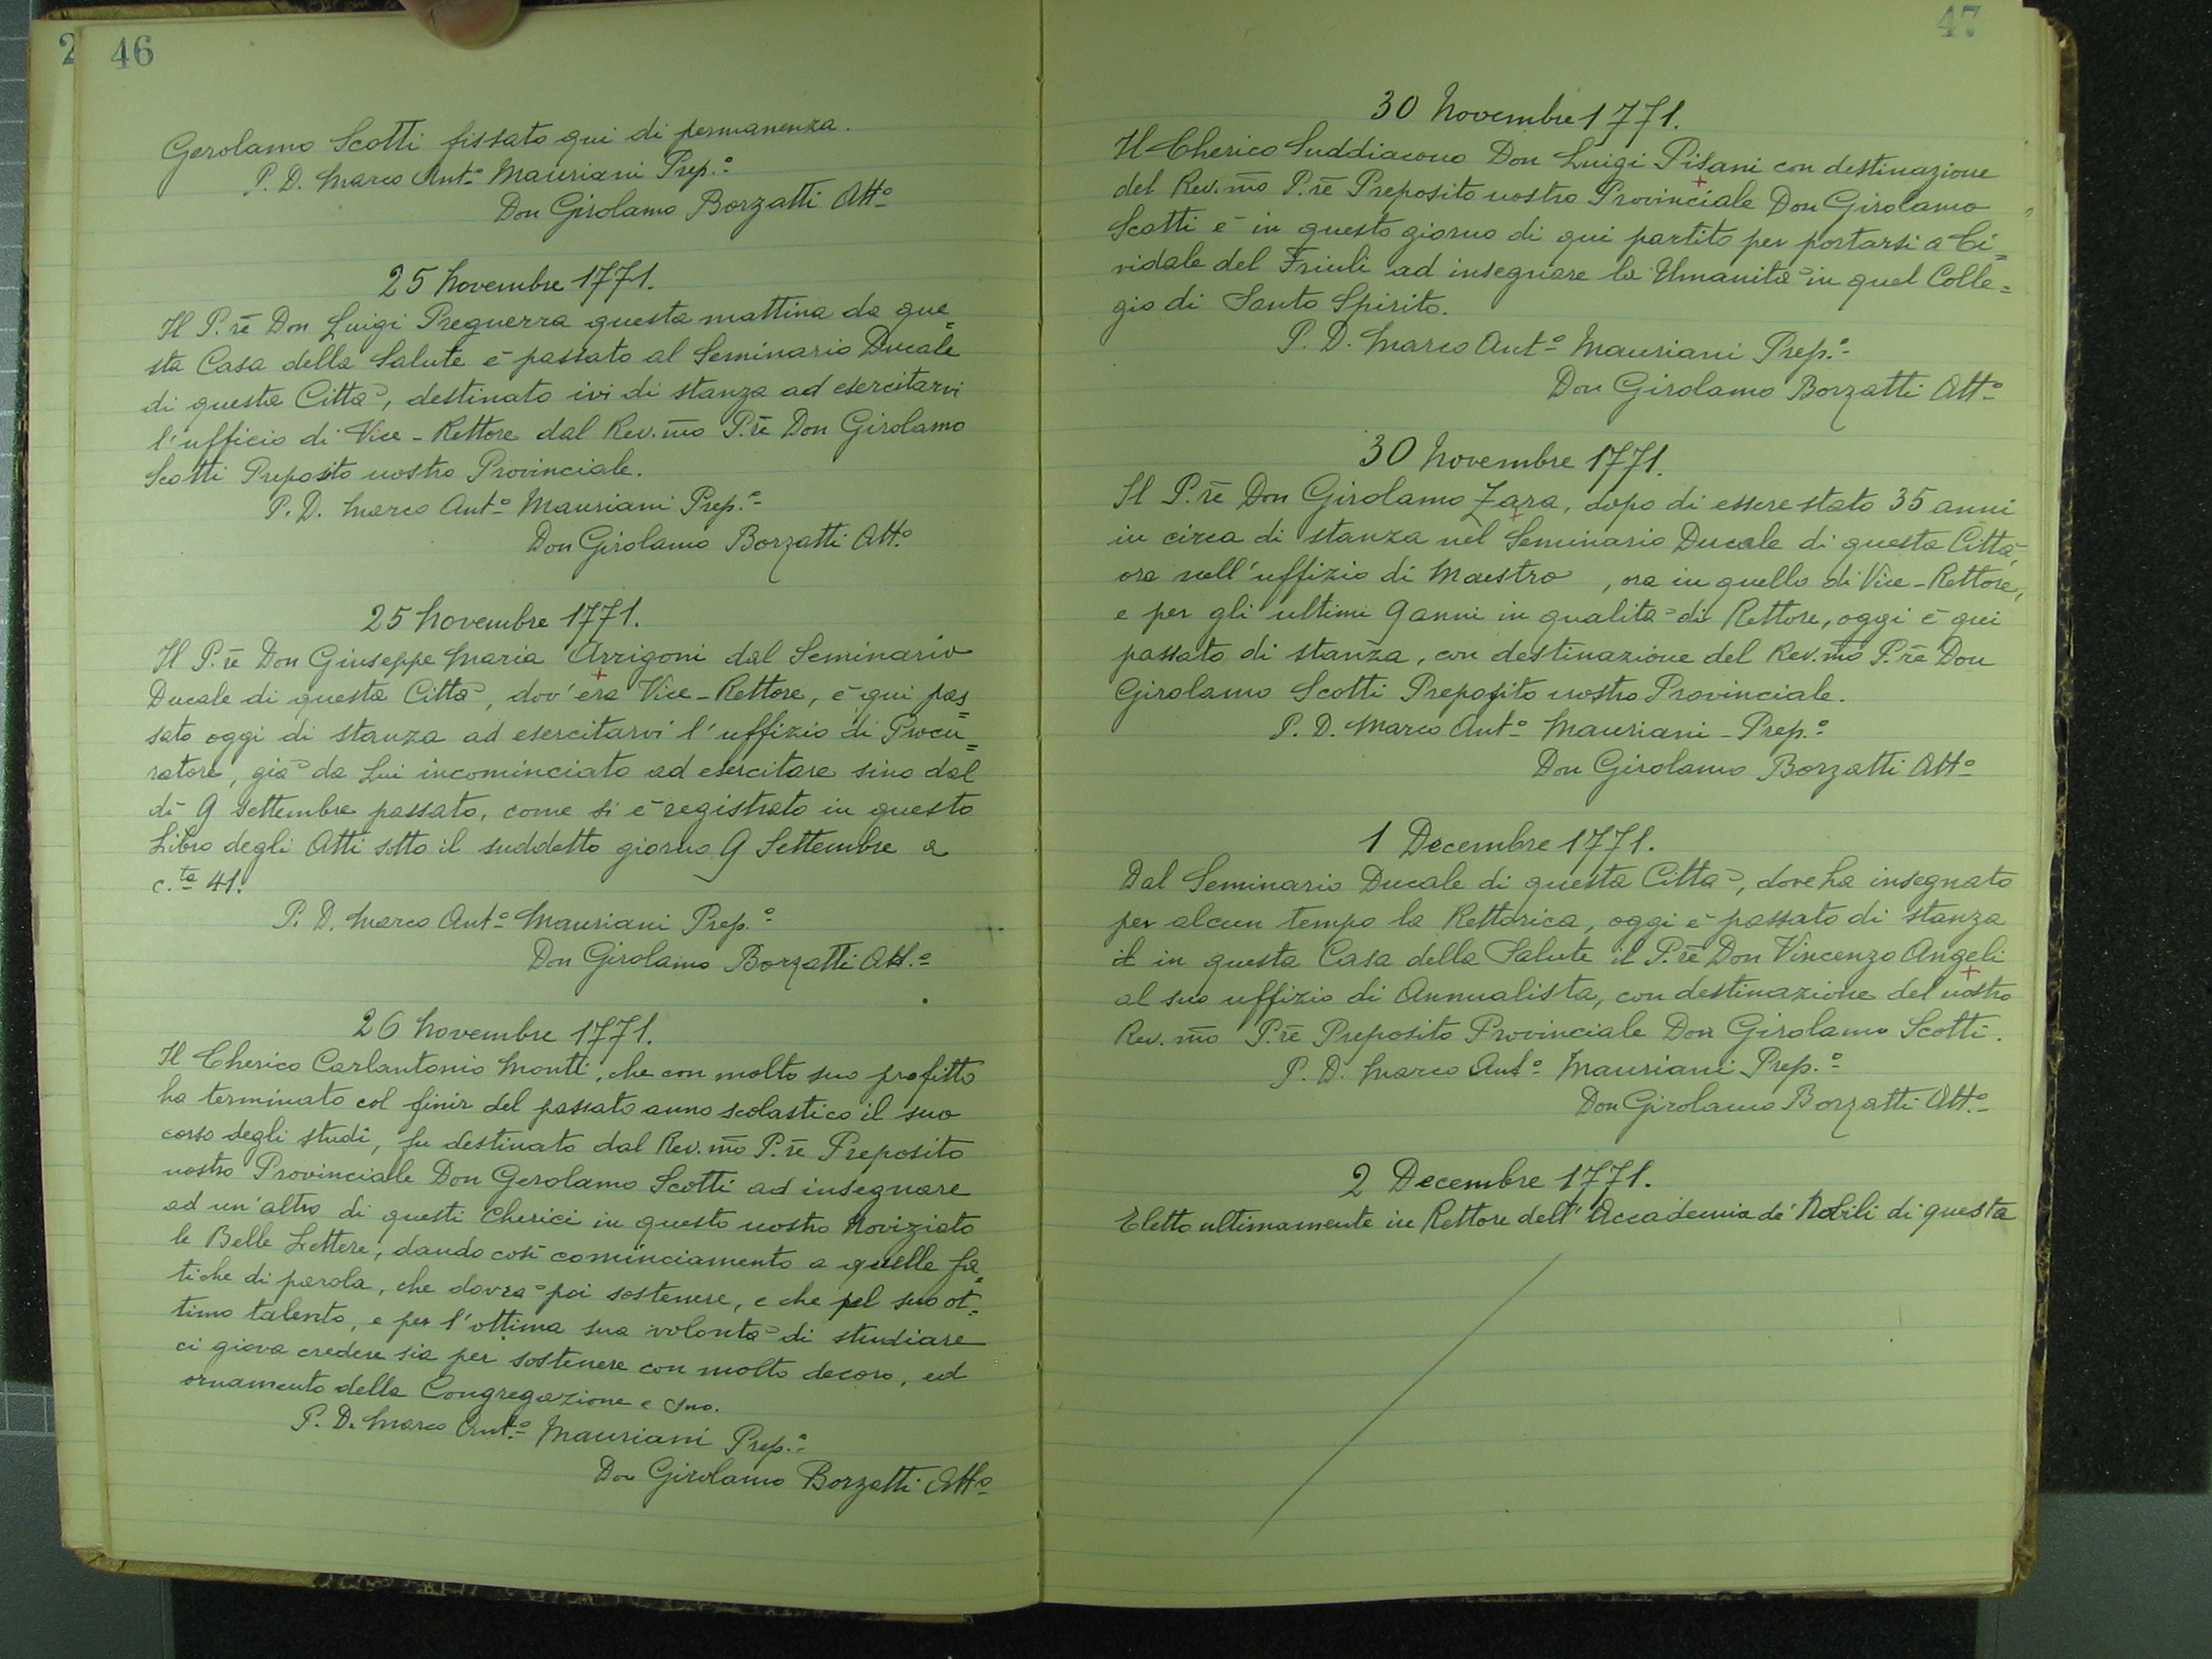 2
46
Gerolamo Scotti fissato qui di permanenza.
P. D. Marco Ant.º Mauriani Prep.º
Don Girolamo Borzatti Att.º
25 Novembre 1771.
Il P.rē Don Luigi Preguerra questa mattina da que=
sta Casa della Salute è passato al Seminario Ducale
di questa Città, destinato ivi di stanza ad esercitarvi
l'ufficio di Vice-Rettore dal Rev.m̄o P.rē Don Girolamo
Scotti Preposito nostro Provinciale.
P. D. Marco Ant.º Mauriani Prep.º
Don Girolamo Borzatti Att.º
25 Novembre 1771.
Il P.rē Don Giuseppe Maria Arrigoni dal Seminario
Ducale di questa Città, dov'era Vice-Rettore, è qui pas=
sato oggi di stanza ad esercitarvi l'uffizio di Procu=
ratore, già da Lui incominciato ad esercitare sino dal
dì 9 settembre passato, come si è registrato in questo
Libro degli Atti sotto il suddetto giorno 9 Settembre a
c.ta 41.
P. D. Marco Ant.º Mauriani Prep.º
Don Girolamo Borzatti Att.º
26 Novembre 1771.
Il Cherico Carlantonio Monti, che con molto suo profitto
ha terminato col finir del passato anno scolastico il suo
corso degli studi, fu destinato dal Rev.m̄o P.rē Preposito
nostro Provinciale Don Gerolamo Scotti ad insegnare
ad un'altro di questi Cherici in questo nostro Noviziato
le Belle Lettere, dando così cominciamento a quelle fa=
tiche di parola, che dovrà poi sostenere, e che pel suo ot=
timo talento, e per l'ottima sua volontà di studiare
ci giova credere sia per sostenere con molto decoro, ed
ornamento della Congregazione e suo.
P. D. Marco Ant.º Mauriani Prep.º
Don Girolamo Borzatti Att.º
47
30 Novembre 1771.
Il Cherico Suddiacono Don Luigi Pisani con destinazione
del Rev.m̄o P.rē Preposito nostro Provinciale Don Girolamo
Scotti è in questo giorno di qui partito per portarsi a Ci=
vidale del Friuli ad insegnare la Umanità in quel Colle=
gio di Santo Spirito.
P. D. Marco Ant.º Mauriani Prep.º
Don Girolamo Borzatti Att.º
30 Novembre 1771.
Il P.rē Don Girolamo Zara, dopo di essere stato 35 anni
in circa di stanza nel Seminario Ducale di questa Città
ora nell'uffizio di Maestro, ora in quello di Vice-Rettore,
e per gli ultimi 9 anni in qualità di Rettore, oggi è qui
passato di stanza, con destinazione del Rev.m̄o P.rē Don
Girolamo Scotti Preposito nostro Provinciale.
P. D. Marco Ant.º Mauriani - Prep.º
Don Girolamo Borzatti Att.º
1 Decembre 1771.
Dal Seminario Ducale di questa Città, dove ha insegnato
per alcun tempo la Rettorica, oggi è passato di stanza
il in questa Casa della Salute il P.rē Don Vincenzo Angeli
al suo uffizio di Annualista, con destinazione del nostro
Rev.m̄o P.rē Preposito Provinciale Don Girolamo Scotti.
P. D. Marco Ant.º Mauriani Prep.º
Don Girolamo Borzatti Att.º
2 Decembre 1771.
Eletto ultimamente in Rettore dell'Accademia dé Nobili di questa